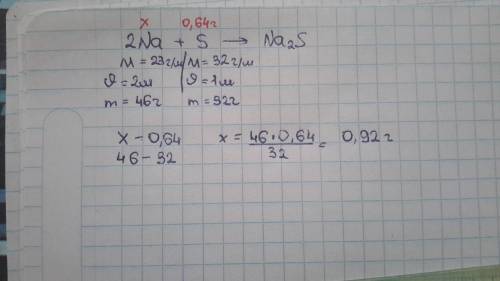 x 0,64г
2Na + S → Na₂S
M = 23г/м M = 32г/м
ϑ = 2м ϑ = 1м
m = 46г m = 32г
x – 0,64 x = 46·0,64/32 = 0,92г
46 – 32